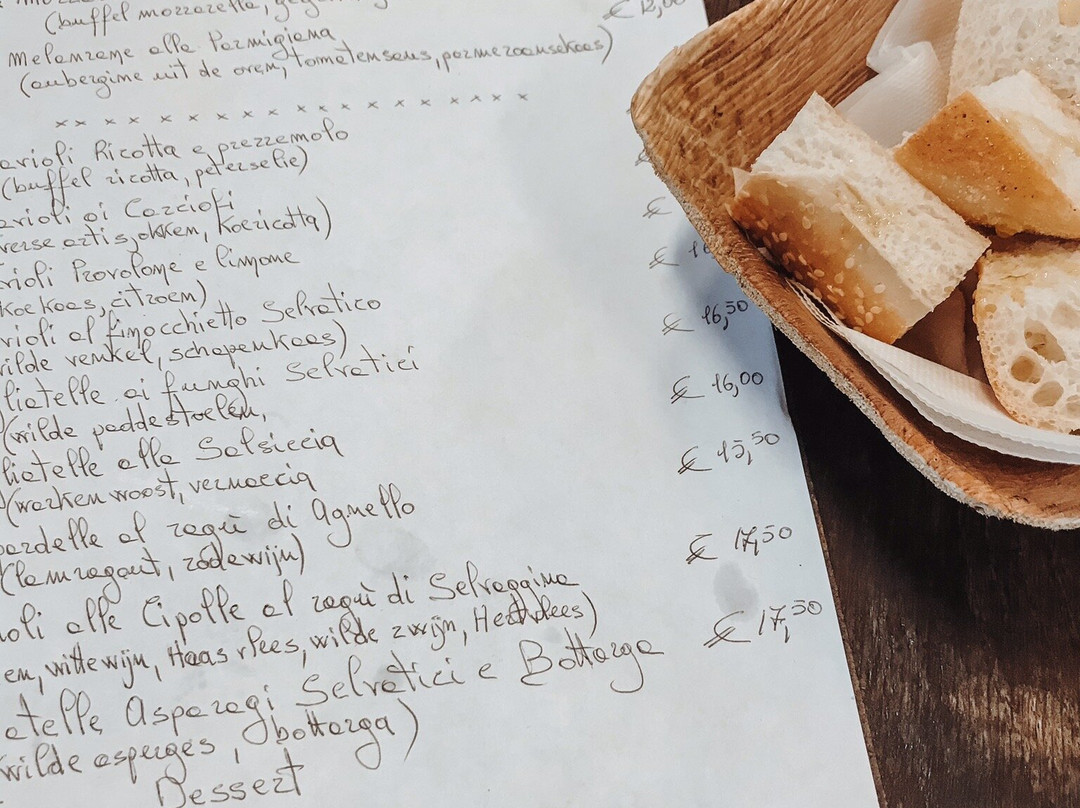 (buffel mozzarella, € 12,00
Melanzane alla Parmigiana
(aubergine uit de oven, tomatensaus, parmezaansekaas)
xx x x x x x x x x x x x x x x
avioli Ricotta e prezzemolo
(buffel ricotta, peterselie)
avioli ai Carciofi €
verse artisjokken, Koericotta)
violi Provolone e limone €
koekaas, citroen)
violi al finocchietto Selvatico € 16,50
wilde venkel, schapenkaas)
liatelle ai funghi Selvatici € 16,00
(wilde paddestoelen,
liatelle alla Salsiccia € 15,50
(varken woost, vernaccia
pardelle al ragù di Agnello € 17,50
(lamragout, rodewijn)
ioli alle Cipolle al ragù di Selvaggina € 17,50
en, witte wijn, Haas vlees, wilde zwijn, Hertvlees)
iatelle Asparagi Selvatici e Bottarga
wilde asperges, bottarga)
Dessert